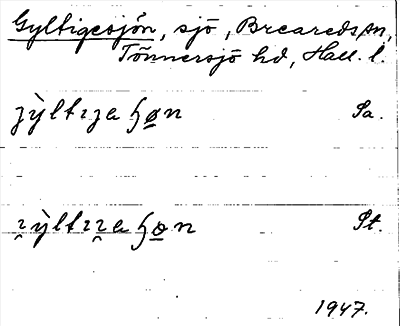 Gyltigesjön, sjö, Breareds sn,
Tönnersjö hd, Hall. l.
ȷỳltıȷaɧøn Sa.
St.
1947.